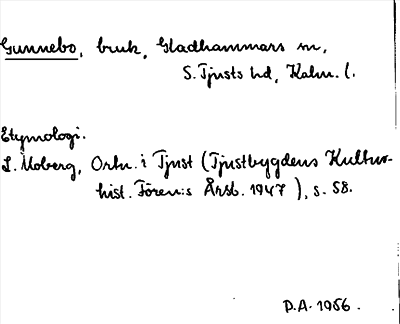 Gunnebo, bruk, Gladhammars sn,
S. Tjusts hd, Kalm. l.
Etymologi.
L. Moberg, Ortn. i Tjust (Tjustbygdens Kultur-
hist. Fören:s Årsb. 1947), s. 58.
D.A. 1956.